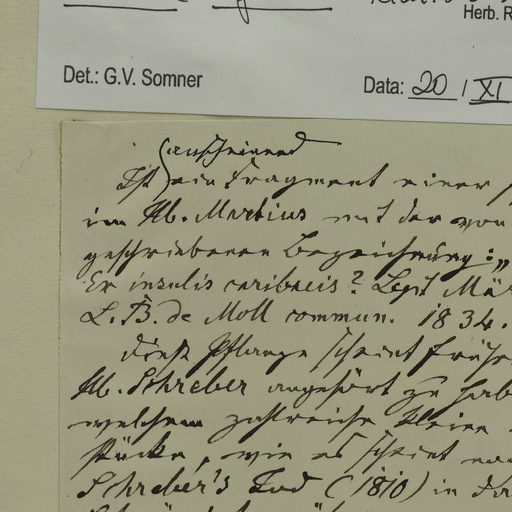 Herb. R
Det.: G.V. Somner
Data: 20 / XI
anscheinend
Ist ein Fragment einer
im Hb. Martius mit der von
geschriebenen Bezeichnung: „
Ex insulis caribaeis? Legit Mär
L. B. de Moll commun. 1834.
Diese Pflanze scheint früher
Hb. Schreber angehört zu hab
welchem zahlreiche kleine
Stücke, wie es scheint na
Schreber's Tod (1810) in da